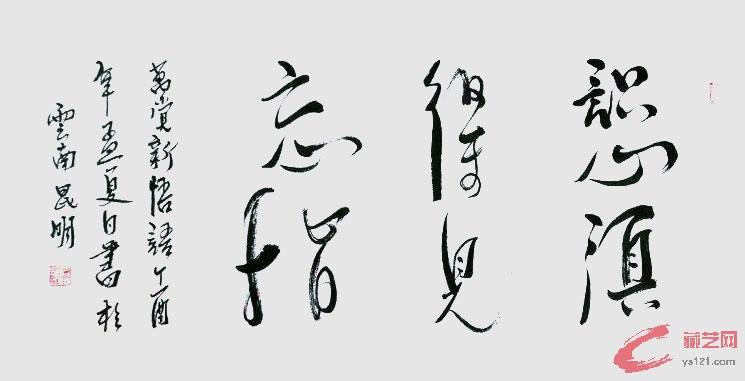 認須
得見
忘指
萬覺新悟語丁酉
年孟夏日書於
雲南昆明
藏艺网
ys121.com